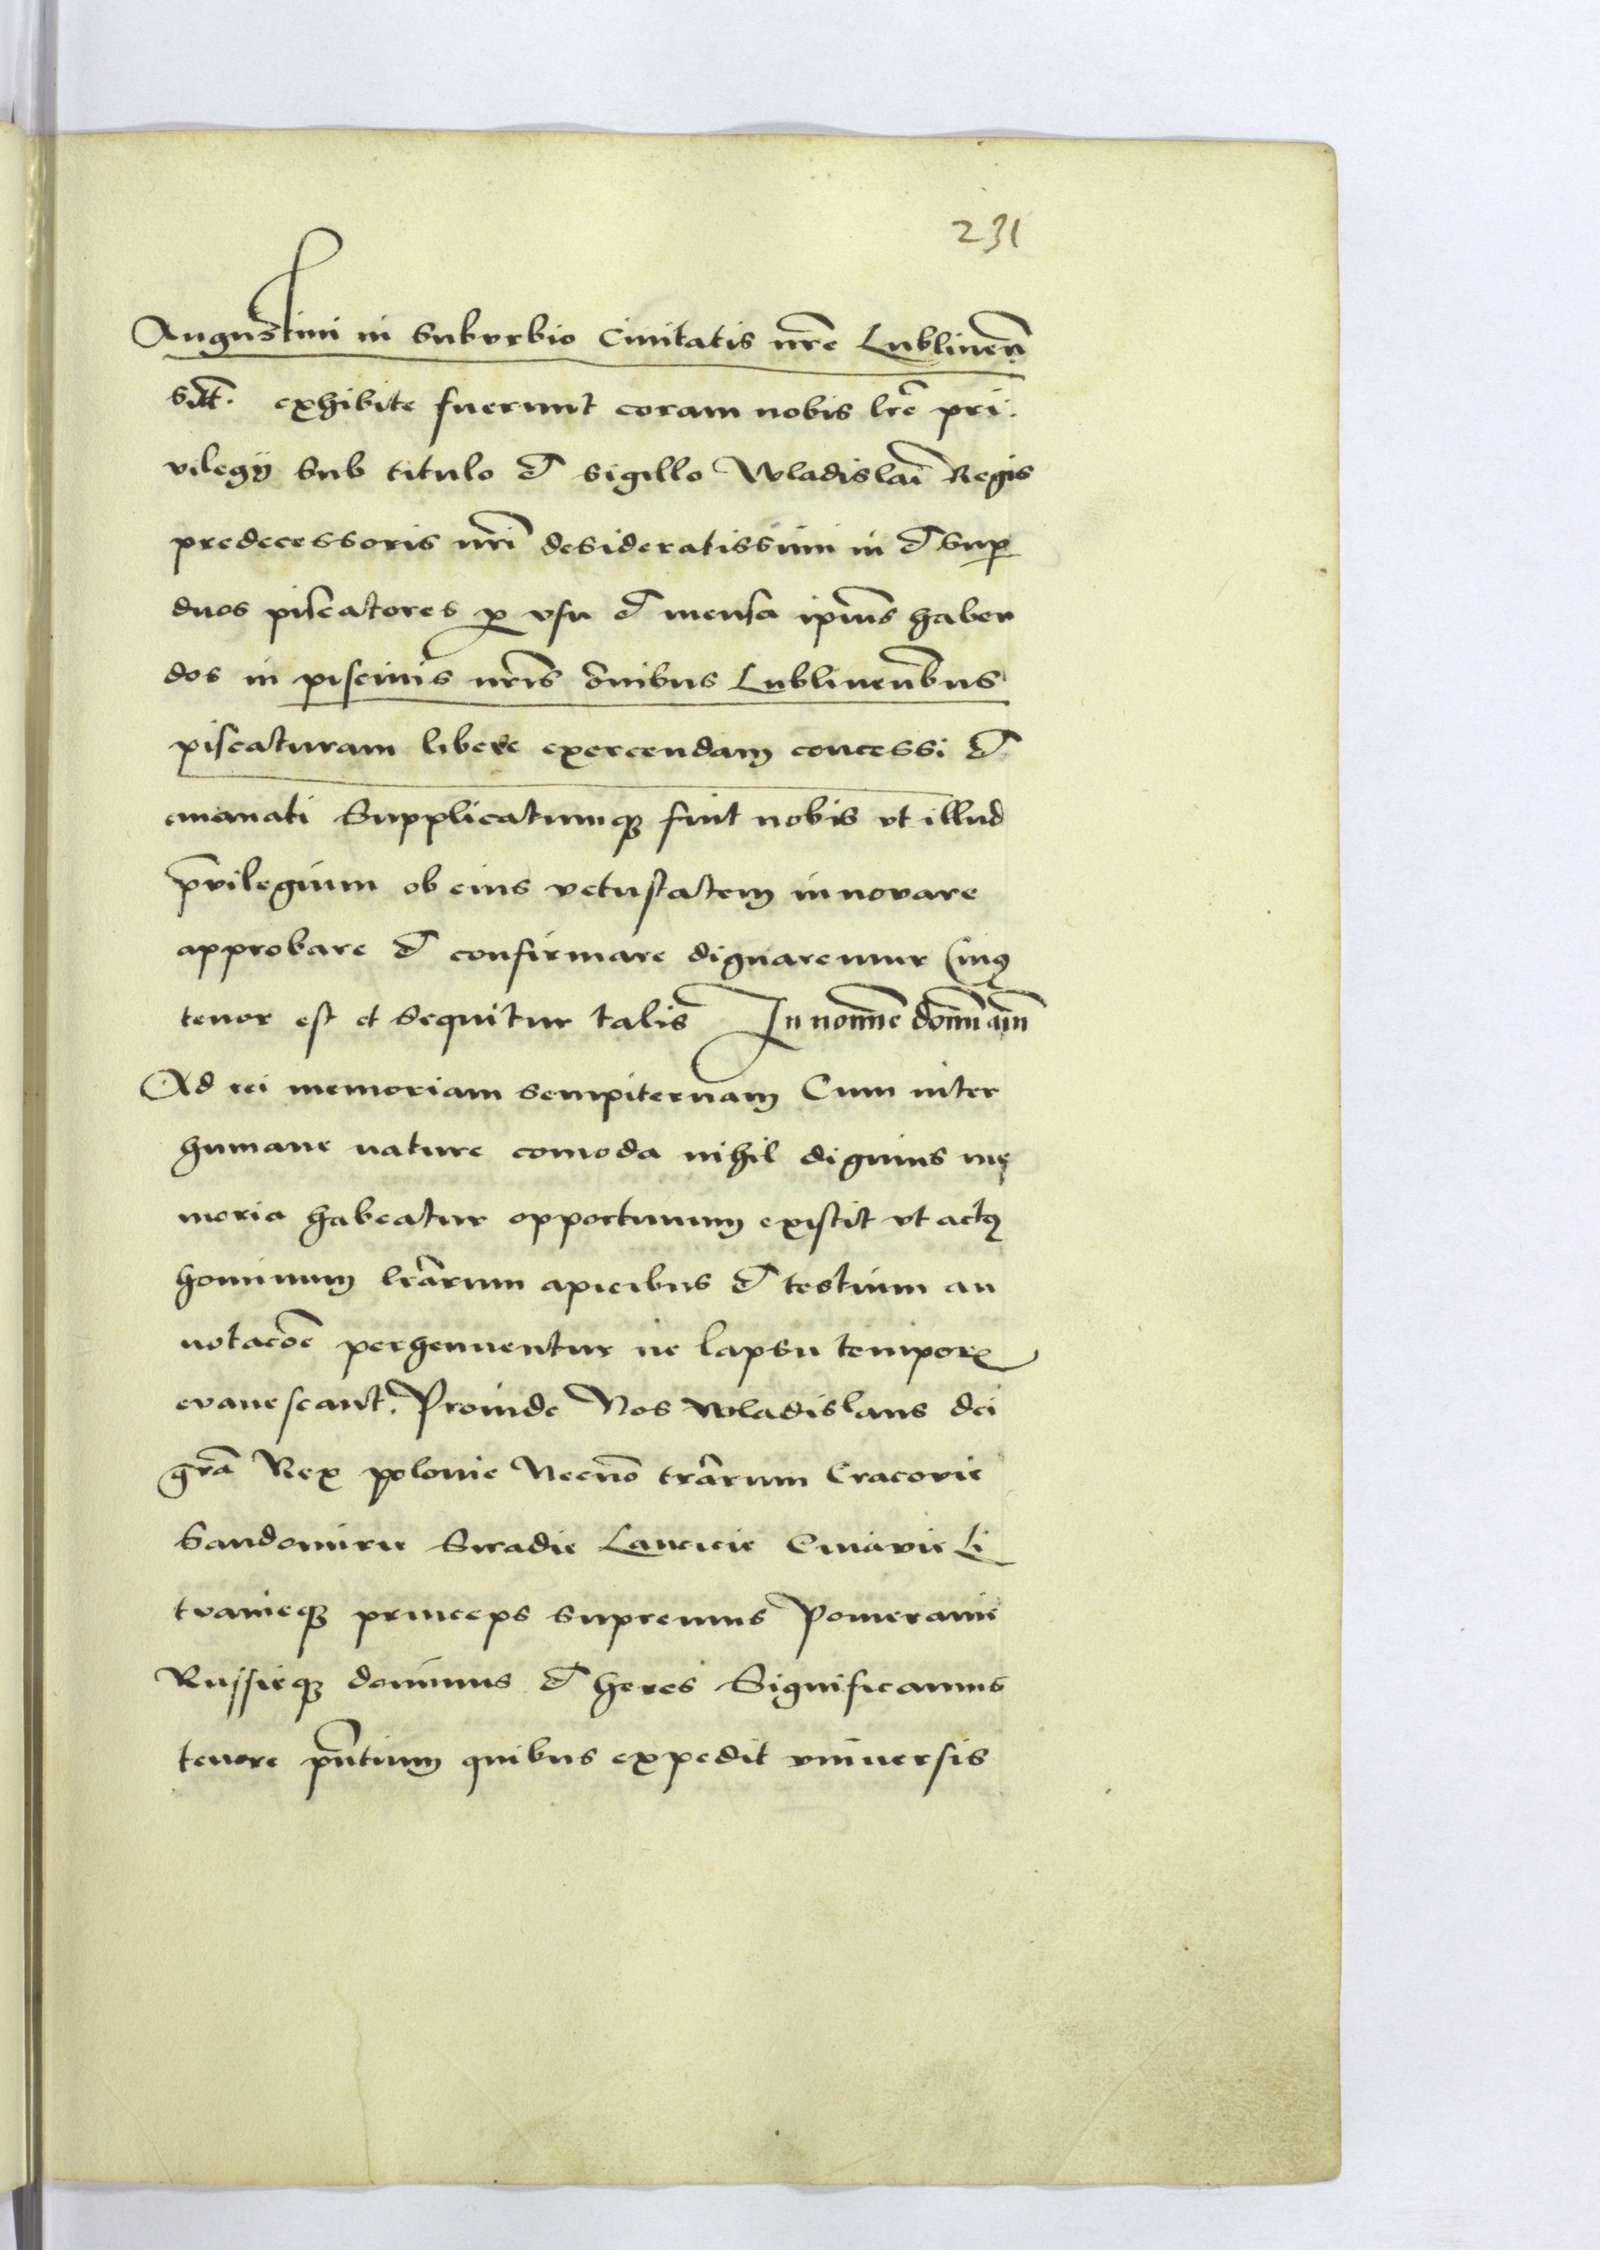 231
Augustini in suburbio Ciuitatis nrē Lublinen̄
exhibite fuerunt coram nobis lrē pri
vilegÿ Sub titulo et sigillo Wladislai Regis
predecessoris nrī desideratissimi in et sup
duos piscatores p vsu et mensa ipius haben
dos in piscinis nrīs oīnibus Lublinen̄bus
piscaturam libere exercendam concessi et
emanati Supplicatumq₃ fuit nobis vt illud
pr̄vilegium ob eius vetustatem innovare
approbare et confirmare dignaremur Cuiꝯ
tenor est et sequitur talis In nomīe domī am̄
Ad rei memoriam sempiternam Cum inter
humane nature comoda nihil dignius me
moria habeatur opportunum existit vt actꝯ
hominum lr̄arum apicibus et testium an
notacōe perhennentur ne lapsu temporꝭ
evanescant. Proinde Nos Wladislaus dei
grā Rex polonie Necnō trārum Cracovie
Sandomirie Siradie Lancicie Cuiavie Li
tvanieq₃ princeps supremus Pomeranie
Russieq₃ dominus et heres Significamus
tenore pn̄tium quibus expedit vniuersis